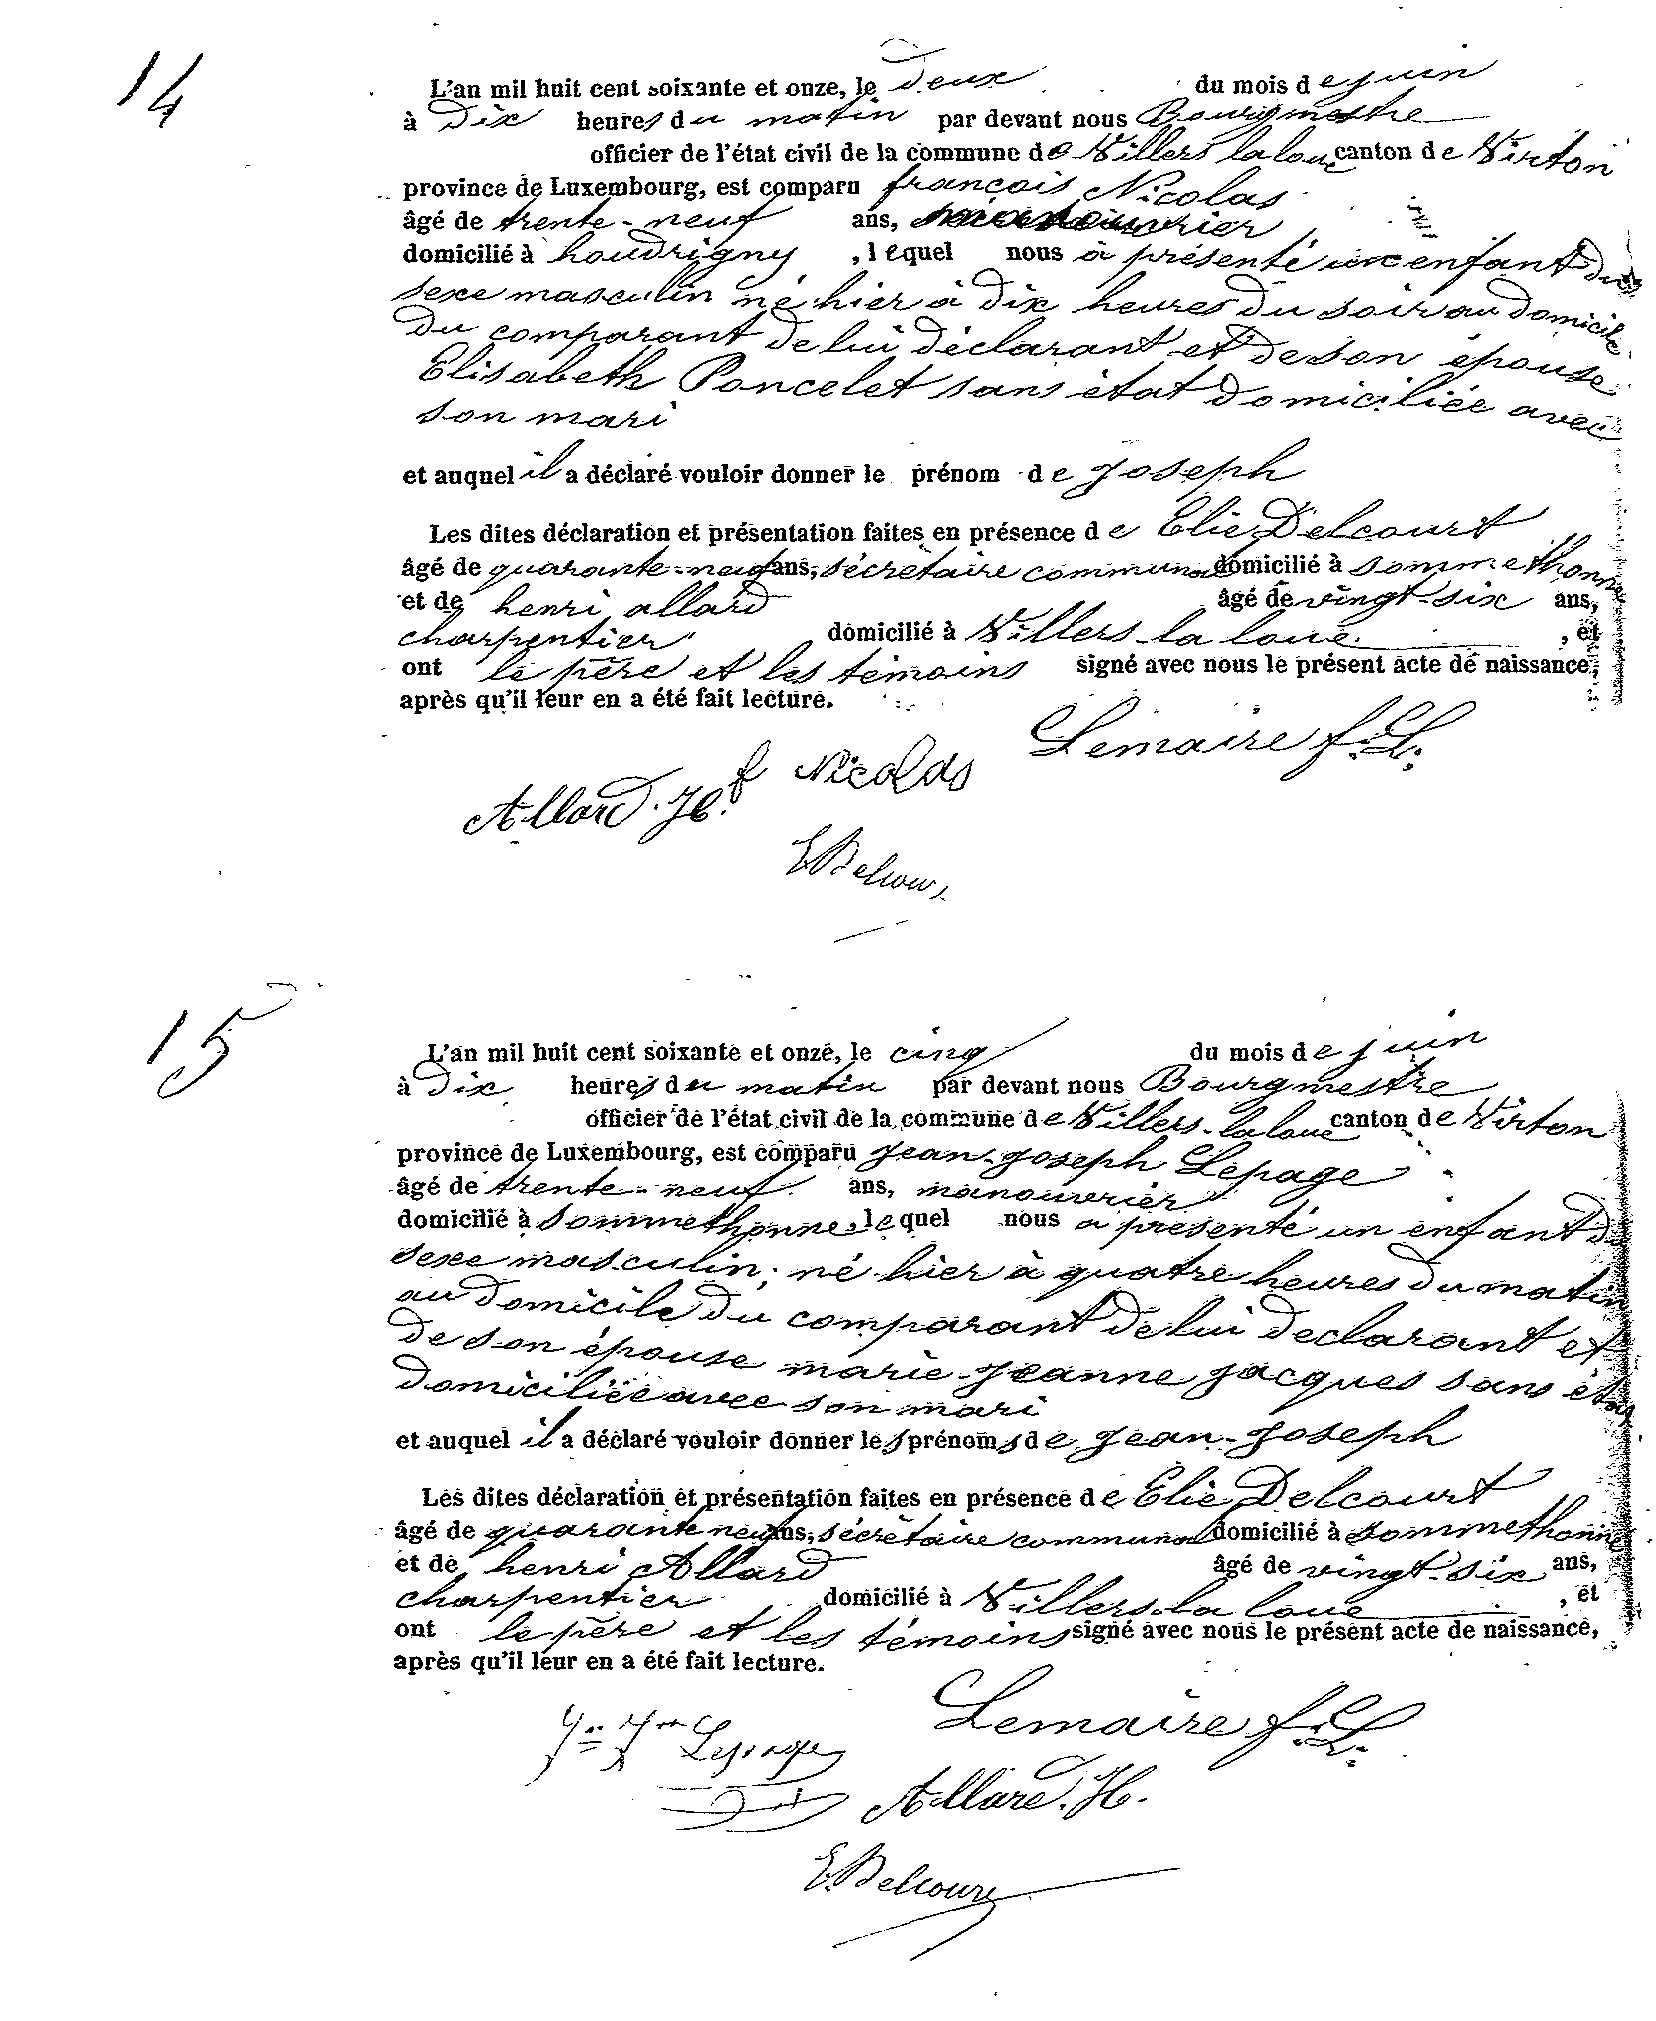 14
L'an mil huit cent soixante et onze, le deux du mois de juin
à dix heures du matin par devant nous Bourgmestre
officier de l'état civil de la commune de Villers la loue canton de Virton
province de Luxembourg, est comparu françois Nicolas
âgé de trente-neuf ans, manouvrier
domicilié à houdrigny, lequel nous a présenté un enfant du
sexe masculin né hier à dix heures du soir au domicile
du comparant de lui déclarant et de son épouse
Elisabeth Poncelet sans état domiciliée avec
son mari
et auquel il a déclaré vouloir donner le prénom de Joseph
Les dites déclaration et présentation faites en présence de Elie Delcourt
âgé de quarante-neuf ans, sécrétaire communal domicilié à sommethonne
et de henri allard âgé de vingt-six ans,
charpentier domicilié à Villers-la loue, et
ont le père et les témoins signé avec nous le présent acte de naissance,
après qu'il leur en a été fait lecture.
Lemaire f. L.
f Nicolas
Allard. H.
E Delcour
15
L'an mil huit cent soixante et onze, le cinq du mois de juin
à dix heures du matin par devant nous Bourgmestre
officier de l'état civil de la commune de Villers-la loue canton de Virton
province de Luxembourg, est comparu Jean-Joseph Lepage
âgé de trente-neuf ans, manouvrier
domicilié à sommethonne, lequel nous a présenté un enfant du
sexe masculin, né hier à quatre heures du matin
au domicile du comparant de lui déclarant et
de son épouse marie-Jeanne Jacques sans état
domiciliée avec son mari
et auquel il a déclaré vouloir donner les prénoms de Jean-Joseph
Les dites déclaration et présentation faites en présence de Elie Delcourt
âgé de quarante neuf ans, sécrétaire communal domicilié à sommethonne
et de henri Allard âgé de vingt-six ans,
charpentier domicilié à Villers-la loue, et
ont le père et les témoins signé avec nous le présent acte de naissance,
après qu'il leur en a été fait lecture.
Lemaire f. L.
Lepage
Allard. H.
E. Delcourt